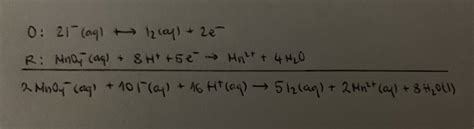 O: 2I⁻(aq) ⟷ I₂(aq) + 2e⁻
R: MnO₄⁻(aq) + 8H⁺ + 5e⁻ → Mn²⁺ + 4H₂O
2MnO₄⁻(aq) + 10I⁻(aq) + 16H⁺(aq) → 5I₂(aq) + 2Mn²⁺(aq) + 8H₂O(l)